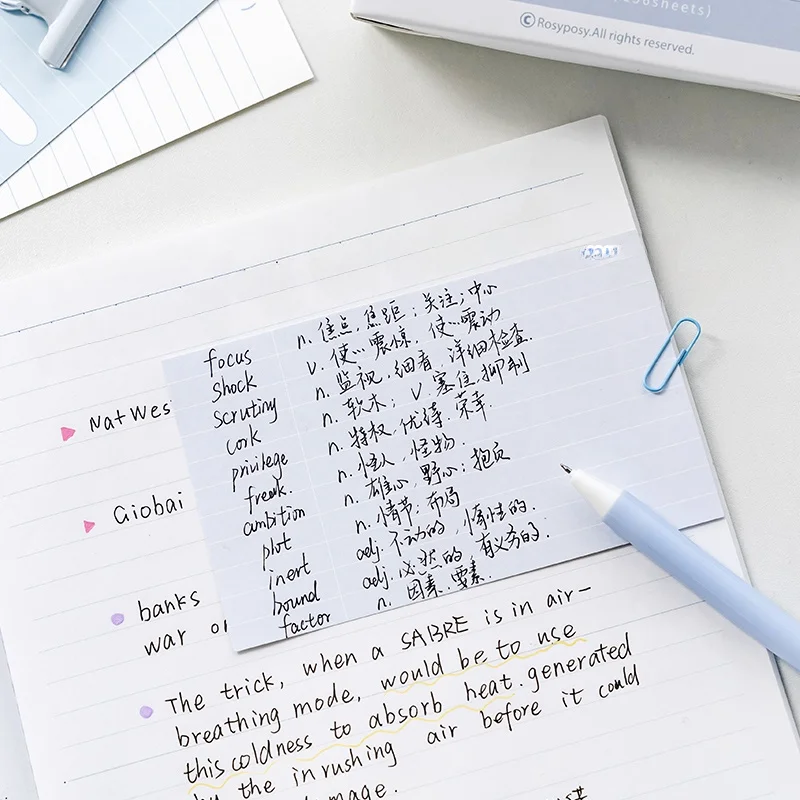 (150sheets)
©Rosyposy.All rights reserved.
focus n. 焦点,焦距;关注;中心
shock v. 使…震惊,使…震动
scrutiny n. 监视,细看,详细检查.
cork n. 软木; v.塞住,抑制
privilege n. 特权,优待,荣幸.
freak. n. 怪人,怪物.
ambition n. 雄心,野心;抱负
plot n. 情节;布局
inert adj. 不动的,惰性的.
bound adj. 必然的,有义务的.
factor n. 因素.要素.
NatWes
Giobai
banks
war or
The trick, when a SABRE is in air-
breathing mode, would be to use
this coldness to absorb heat.generated
by the inrushing air before it could
mage.